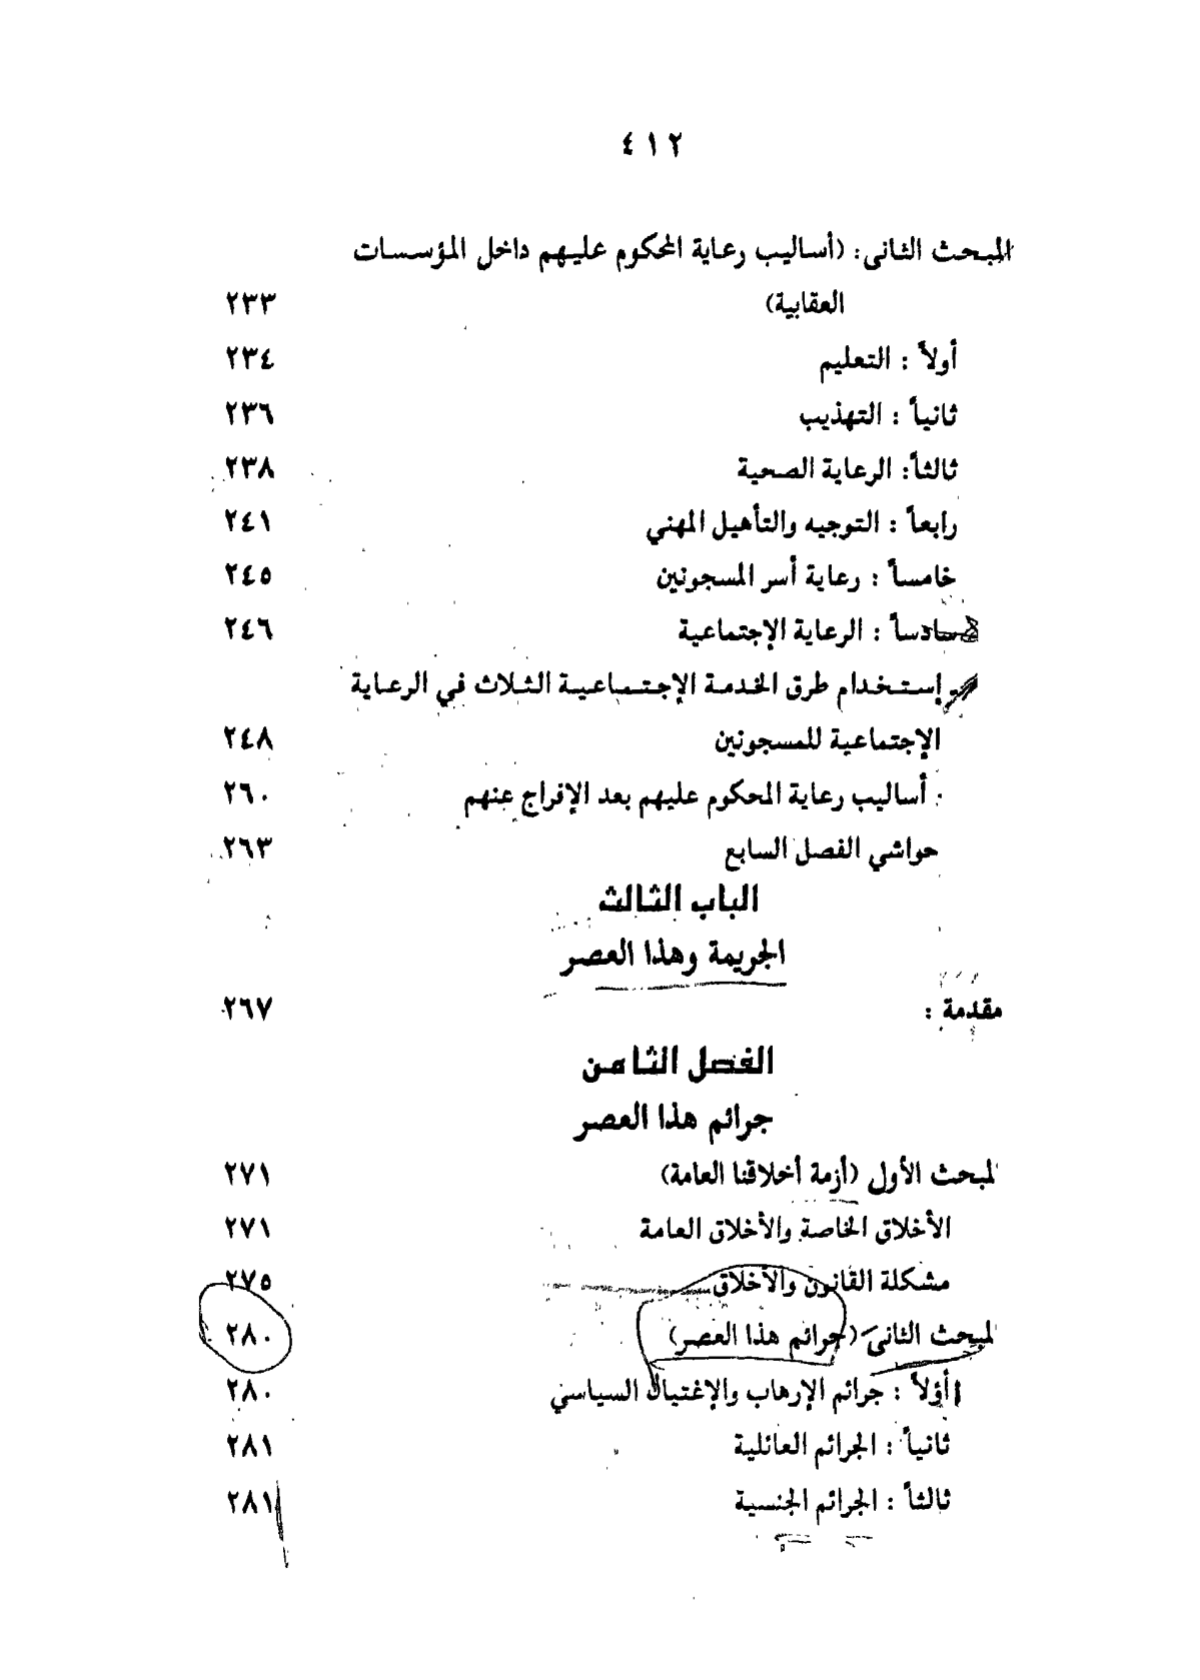 ٤١٢
المبحث الثانى: (أساليب رعاية المحكوم عليهم داخل المؤسسات
العقابية) ٢٣٣
أولاً : التعليم ٢٣٤
ثانياً : التهذيب ٢٣٦
ثالثاً: الرعاية الصحية ٢٣٨
رابعاً : التوجيه والتأهيل المهني ٢٤١
خامساً : رعاية أسر المسجونين ٢٤٥
سادساً : الرعاية الإجتماعية ٢٤٦
إستخدام طرق الخدمة الإجتماعية الثلاث في الرعاية
الإجتماعية للمسجونين ٢٤٨
أساليب رعاية المحكوم عليهم بعد الإفراج عنهم ٢٦٠
حواشي الفصل السابع ٢٦٣
الباب الثالث
الجريمة وهذا العصر
مقدمة : ٢٦٧
الفصل الثامن
جرائم هذا العصر
المبحث الأول (أزمة أخلاقنا العامة) ٢٧١
الأخلاق الخاصة والأخلاق العامة ٢٧١
مشكلة القانون والأخلاق ٢٧٥
المبحث الثانى (جرائم هذا العصر) ٢٨٠
أولاً : جرائم الإرهاب والإغتيال السياسي ٢٨٠
ثانياً : الجرائم العائلية ٢٨١
ثالثاً : الجرائم الجنسية ٢٨١